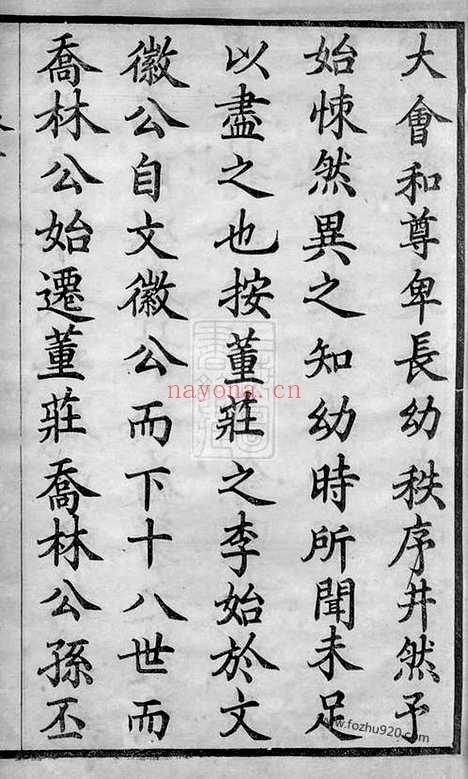 大會和尊卑長幼秩序井然予
始悚然異之知幼時所聞未足
以盡之也按董莊之李始於文
徽公自文徽公而下十八世而
喬林公始遷董莊喬林公孫丕
nayona.cn
www.fozhu920.com